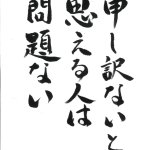 申し訳ないと
思える人は
問題ない